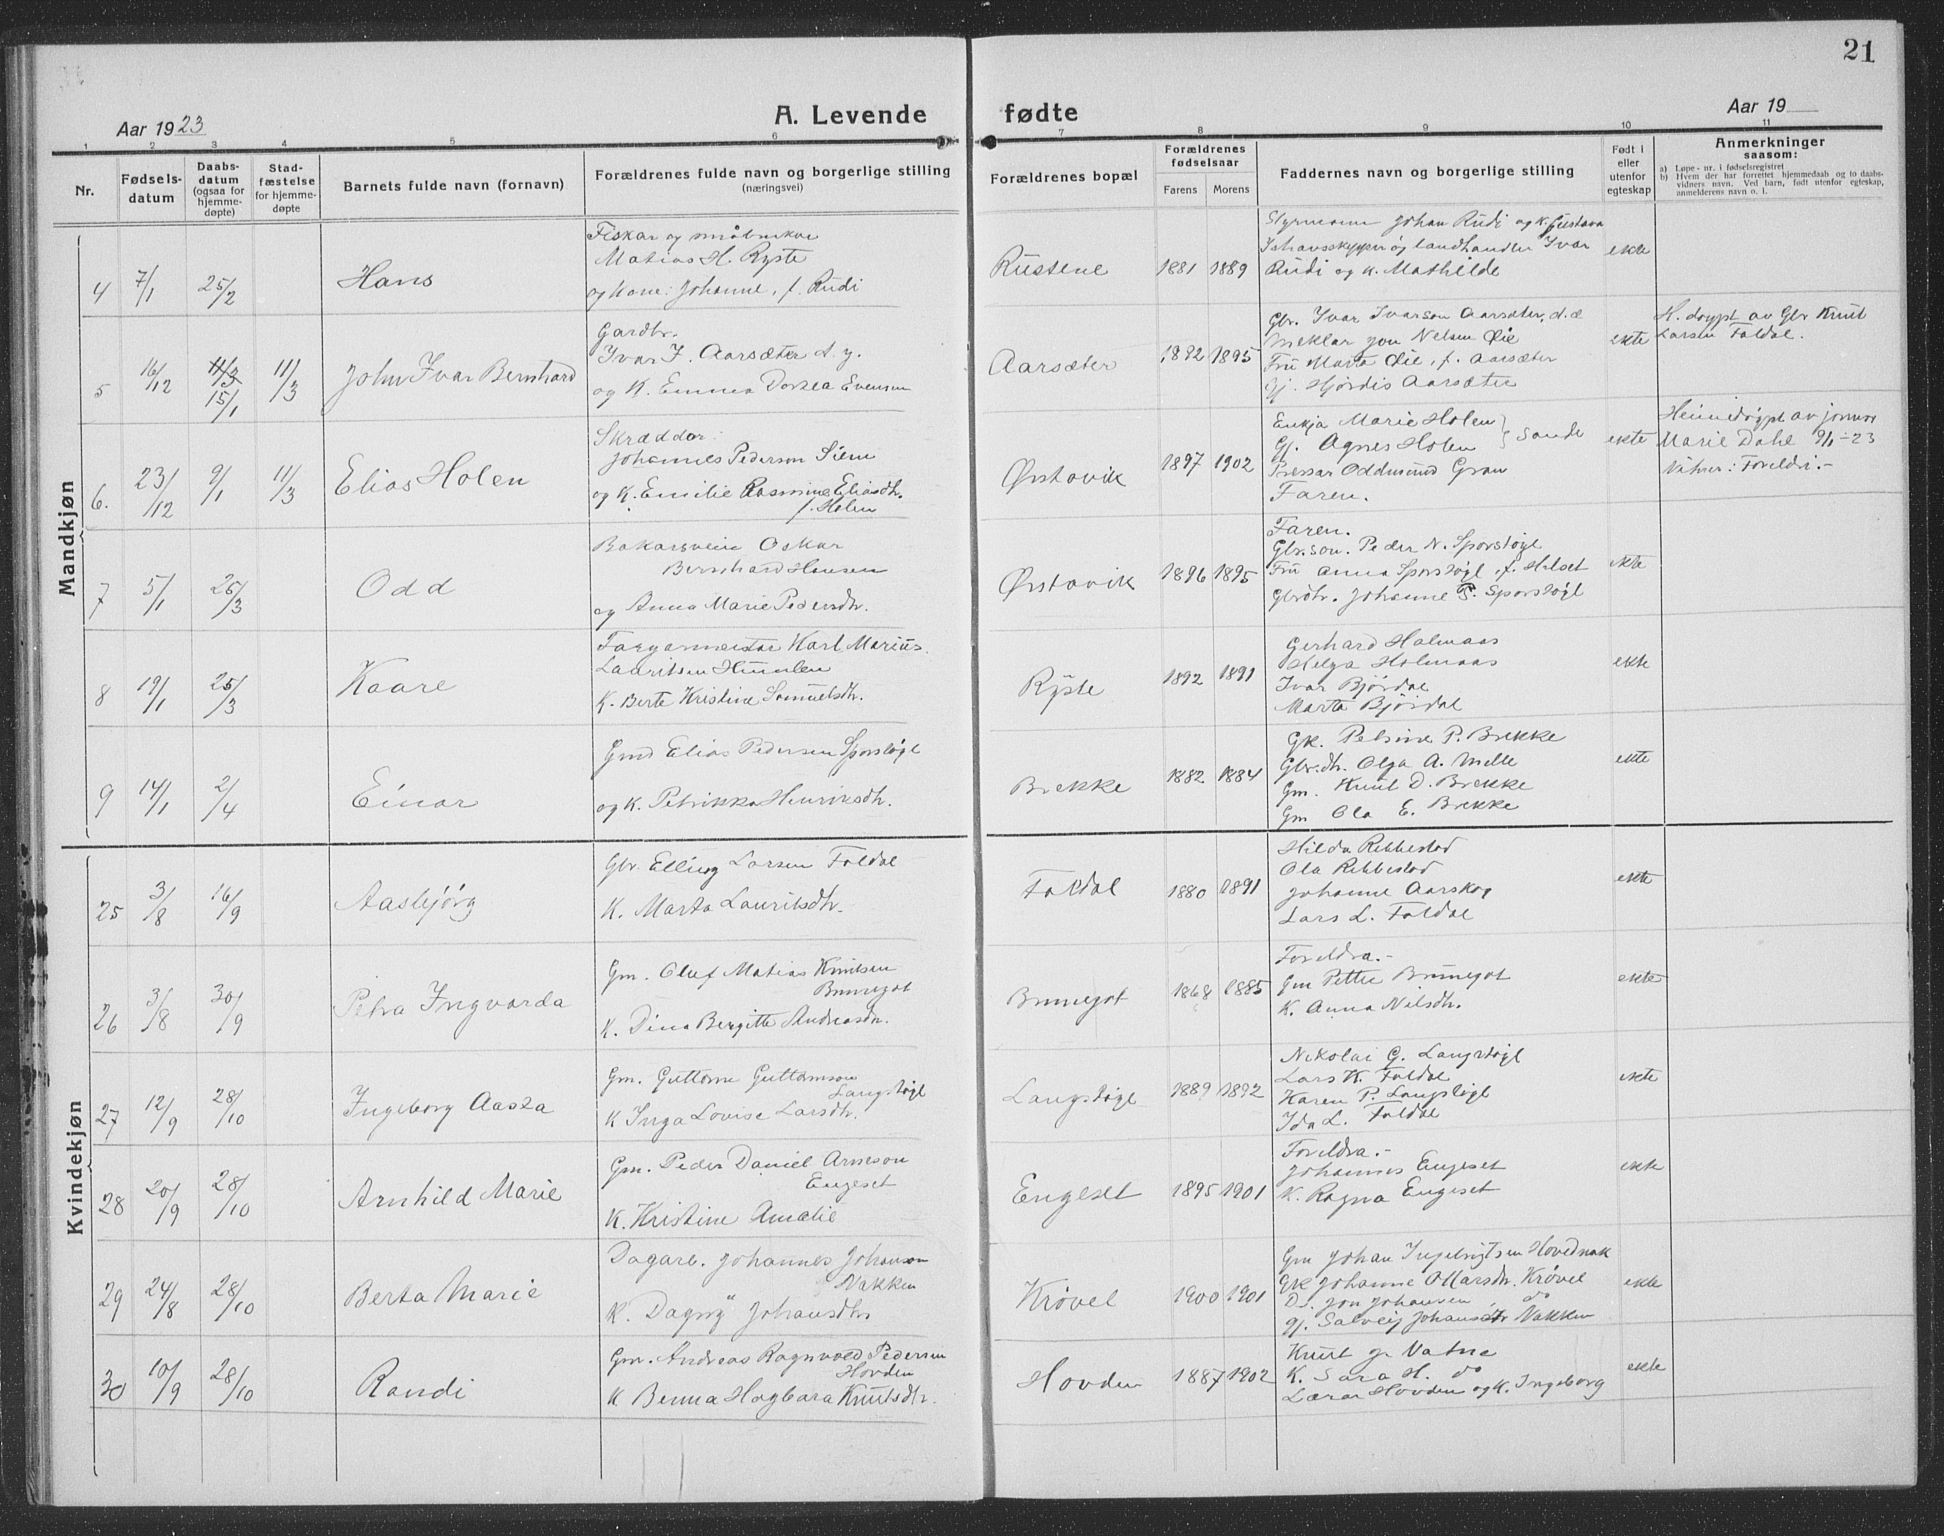 21
Aar 1923
A. Levende fødte
Aar 19
1 2 3 4 5 6 7 8 9 10 11
Nr.
Fødsels-datum
Daabs-datum (ogsaa for hjemme-døpte)
Stad-fæstelse for hjemme-døpte
Barnets fulde navn (fornavn)
Forældrenes fulde navn og borgerlige stilling (næringsvei)
Forældrenes bopæl
Forældrenes fødselsaar
Farens Morens
Faddernes navn og borgerlige stilling
Født i eller utenfor egteskap
Anmerkninger saasom:
a) Løpe-nr. i fødselsregistret
b) Hvem der har forrettet hjemmedaab og to daabs-vidners navn. Ved barn, født utenfor egteskap, anmelderens navn o. l.
Mandkjøn
4 7/1 25/2 Hans
Fiskar og småbrukar
Matias H. Ryste
og Kone: Johanne, f. Rudi
Rustene 1881 1889
Styrmann Johan Rudi og K. Gustava
Ishavsskipper og landhandler Ivar
Rudi og K. Mathilde
ekte
5 16/12 11/3 15/1 11/3 John Ivar Bernhard
Gardbr.
Ivar I. Aarsæter d. y.
og K. Emma Dorthea Evensen
Aarsæter 1892 1895
Gbr. Ivar Ivarson Aarsæter, d. e
Meklar Jon Nelsen Øie
Fru Marta Øie, f. Aarsæter
Gj. Hjördis Aarsæter
ekte
H. døypt av Gbr Knut
Larsen Foldal.
6. 23/12 9/1 11/3 Elias Holen
Skræddar
Johannes Pederson Siem
og K. Emilie Rasmine Eliasdh.
f. Holen
Ørstavik 1897 1902
Enkja Marie Holen
Gj. Agnes Holen } Sande
Pressar Oddmund Gran
Faren.
ekte
Heimedøypt av jormor
Marie Dahl 9/1-23
Vitner: Foreldri.-
7 5/1 25/3 Odd
Bakarsvein Oskar
Bernhard Hansen
og Anna Marie Pedersdh.
Ørstavik 1896 1895
Faren.
Gbr.son. Peder N. Sporstøyl
Fru Anna Sporstøyl, f. Helset
Gbrdtr. Johanne P. Sporstøyl
ekte
8 19/1 25/3 Kaare
Fargarmeistar Karl Marius
Lauritsen Humlen
K. Berte Kristine Samuelsdh.
Ryste 1892 1891
Gerhard Holmaas
Helga Holmaas
Ivar Björdal
Marta Björdal
ekte
9 14/1 2/4 Einar
Gmd Elias Pedersen Sporstøyl
og K. Petrikka Henriksdh.
Brekke 1882 1884
Gk. Petrine P. Brekke
Gbr.dh. Olga A. Melle
Gm. Knut D. Brekke
Gm Ola E. Brekke
ekte
Kvindekjøn
25 3/8 16/9 Aasbjörg
Gbr. Elling Larsen Foldal
K. Marta Lauritsdh.
Foldal 1880 1891
Hilda Rebbestad
Ola Rebbestad
Johanne Aarskog
Lars L. Foldal
ekte
26 3/8 30/9 Petra Ingvarda
Gm. Oluf Matias Knutsen
Brunegot
K. Dina Bergitte Andreasdh.
Brunegot 1868 1885
Foreldra.-
Gm Petter Brunegot
K. Anna Nilsdh.
ekte
27 12/9 28/10 Ingeborg Aasta
Gm. Guttorm Guttormson
Langstøyl
K Inga Lovise Larsdh.
Langstøyl 1889 1892
Nikolai G. Langstøyl
Lars K. Foldal
Karen P. Langstøyl
Ida L. Foldal
ekte
28 20/9 28/10 Arnhild Marie
Gm. Peder Daniel Arneson
Engeset
K. Kristine Amalie
Engeset 1895 1901
Foreldra.-
Johannes Engeset
K. Ragna Engeset
ekte
29 24/8 28/10 Berta Marie
Dagarb. Johannes Johanson
Nakken
K. Dagny Johansdh
Krøvel 1900 1901
Gm Johan Ingebrigtsen Hovednak
Gk Johanne Olfarsdh. Krøvel
D. Jon Johansen do
Gj. Salveig Johansdtr Nakken
ekte
30 10/9 28/10 Randi
Gm. Andreas Ragnvald Pedersen
Hovden
K Benna Hagbara Knutsdh.
Hovden 1887 1902
Knut J. Vatne
K. Sara H. do
Lærar Hovden og K. Ingeborg
ekte